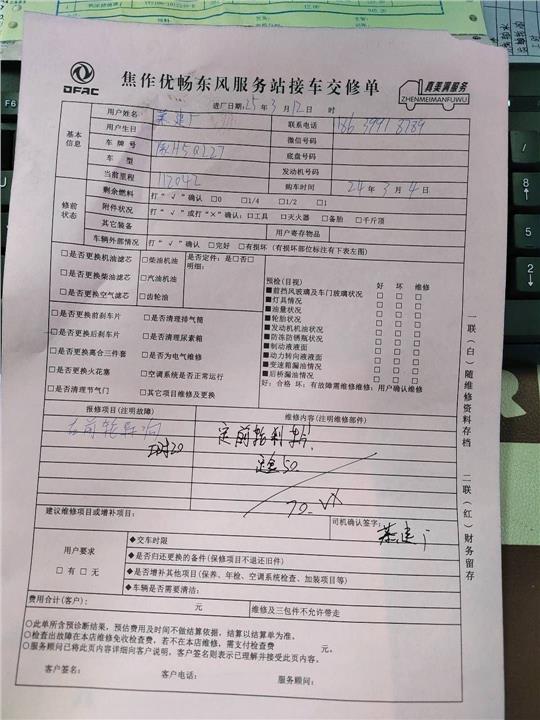 DFAC
焦作优畅东风服务站接车交修单
真美满服务
ZHENMEIMANFUWU
进厂日期:25年3月12日 时
基本信息
用户姓名
联系电话
用户生日
微信号码
车牌号 H5Q227
底盘号码
车型
发动机号码
当前里程 117042
购车时间 24年3月4日
修前状态
剩余燃料 打“√”确认 □0 □1/4 □1/2 □1
附件状况 打“√”或打“×”确认:□工具 □灭火器 □备胎 □千斤顶
其它装备 用户寄存物品
车辆外部情况 打“√”确认 □完好 □有损坏(有损坏部位标注有下表左图)
□是否更换机油滤芯 □柴油机油 是否定件:是□否□
明细:
□是否更换柴油滤芯 □汽油机油
□是否更换空气滤芯 □齿轮油
□是否更换前刹车片 □是否清理排气筒
□是否更换后刹车片 □是否清理尿素箱
□是否更换离合三件套 □是否为电气维修
□是否更换火花塞 □空调系统是否正常运行
□是否清理节气门 □其它项目维修及更换
预检(目视) 好 坏 维修
■前挡风玻璃及车门玻璃状况 □ □ □
■灯具情况 □ □ □
■油量状况 □ □ □
■轮胎状况 □ □ □
■发动机机油状况 □ □ □
■防冻防锈瓶状况 □ □ □
■制动液液面 □ □ □
■动力转向液液面 □ □ □
■变速箱漏油情况 □ □ □
■后桥漏油情况 □ □ □
好:合格 坏:有故障需维修维修:用户确认维修
报修项目(注明故障) 维修内容(注明维修部件)
右前轮异响
工时20
定前轮刹车片
定金50
70-
建议维修项目或增补项目:
司机确认签字:
用户要求
□有 □无
◆交车时限
◆是否归还更换的备件(保修项目不退还旧件)
◆是否增补其他项目(保养、年检、空调系统检查、加装项目等)
◆车辆是否需要清洁:
费用合计(客户): 元 维修及三包件不允许带走
○此单所含预诊断结果,预估费用及时间不做结算依据,结算以结算单为准。
○检查出故障在本店维修免收检查费,若不在本店维修,需支付检查费 元。
○服务顾问已将此页内容详细向客户说明,客户签名则表示已理解并接受此页内容。
客户签名: 客户电话: 服务顾问:
一联(白)随维修资料存档
二联(红)财务留存